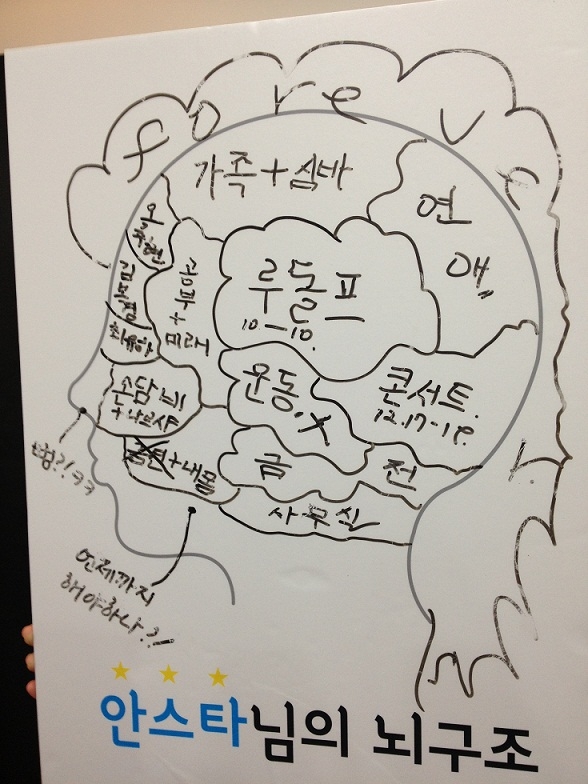 forever
가족+심바
연
애
오
휘현
김
보
경
공
부
+
미래
루돌프
10-10.
최유하
손담비
+나르샤
운동.X
콘서트.
12.17-18.
금
전
+내몸
사무실
뱀?!ㅋㅋ
언제까지
해야하나?!
안스타님의 뇌구조